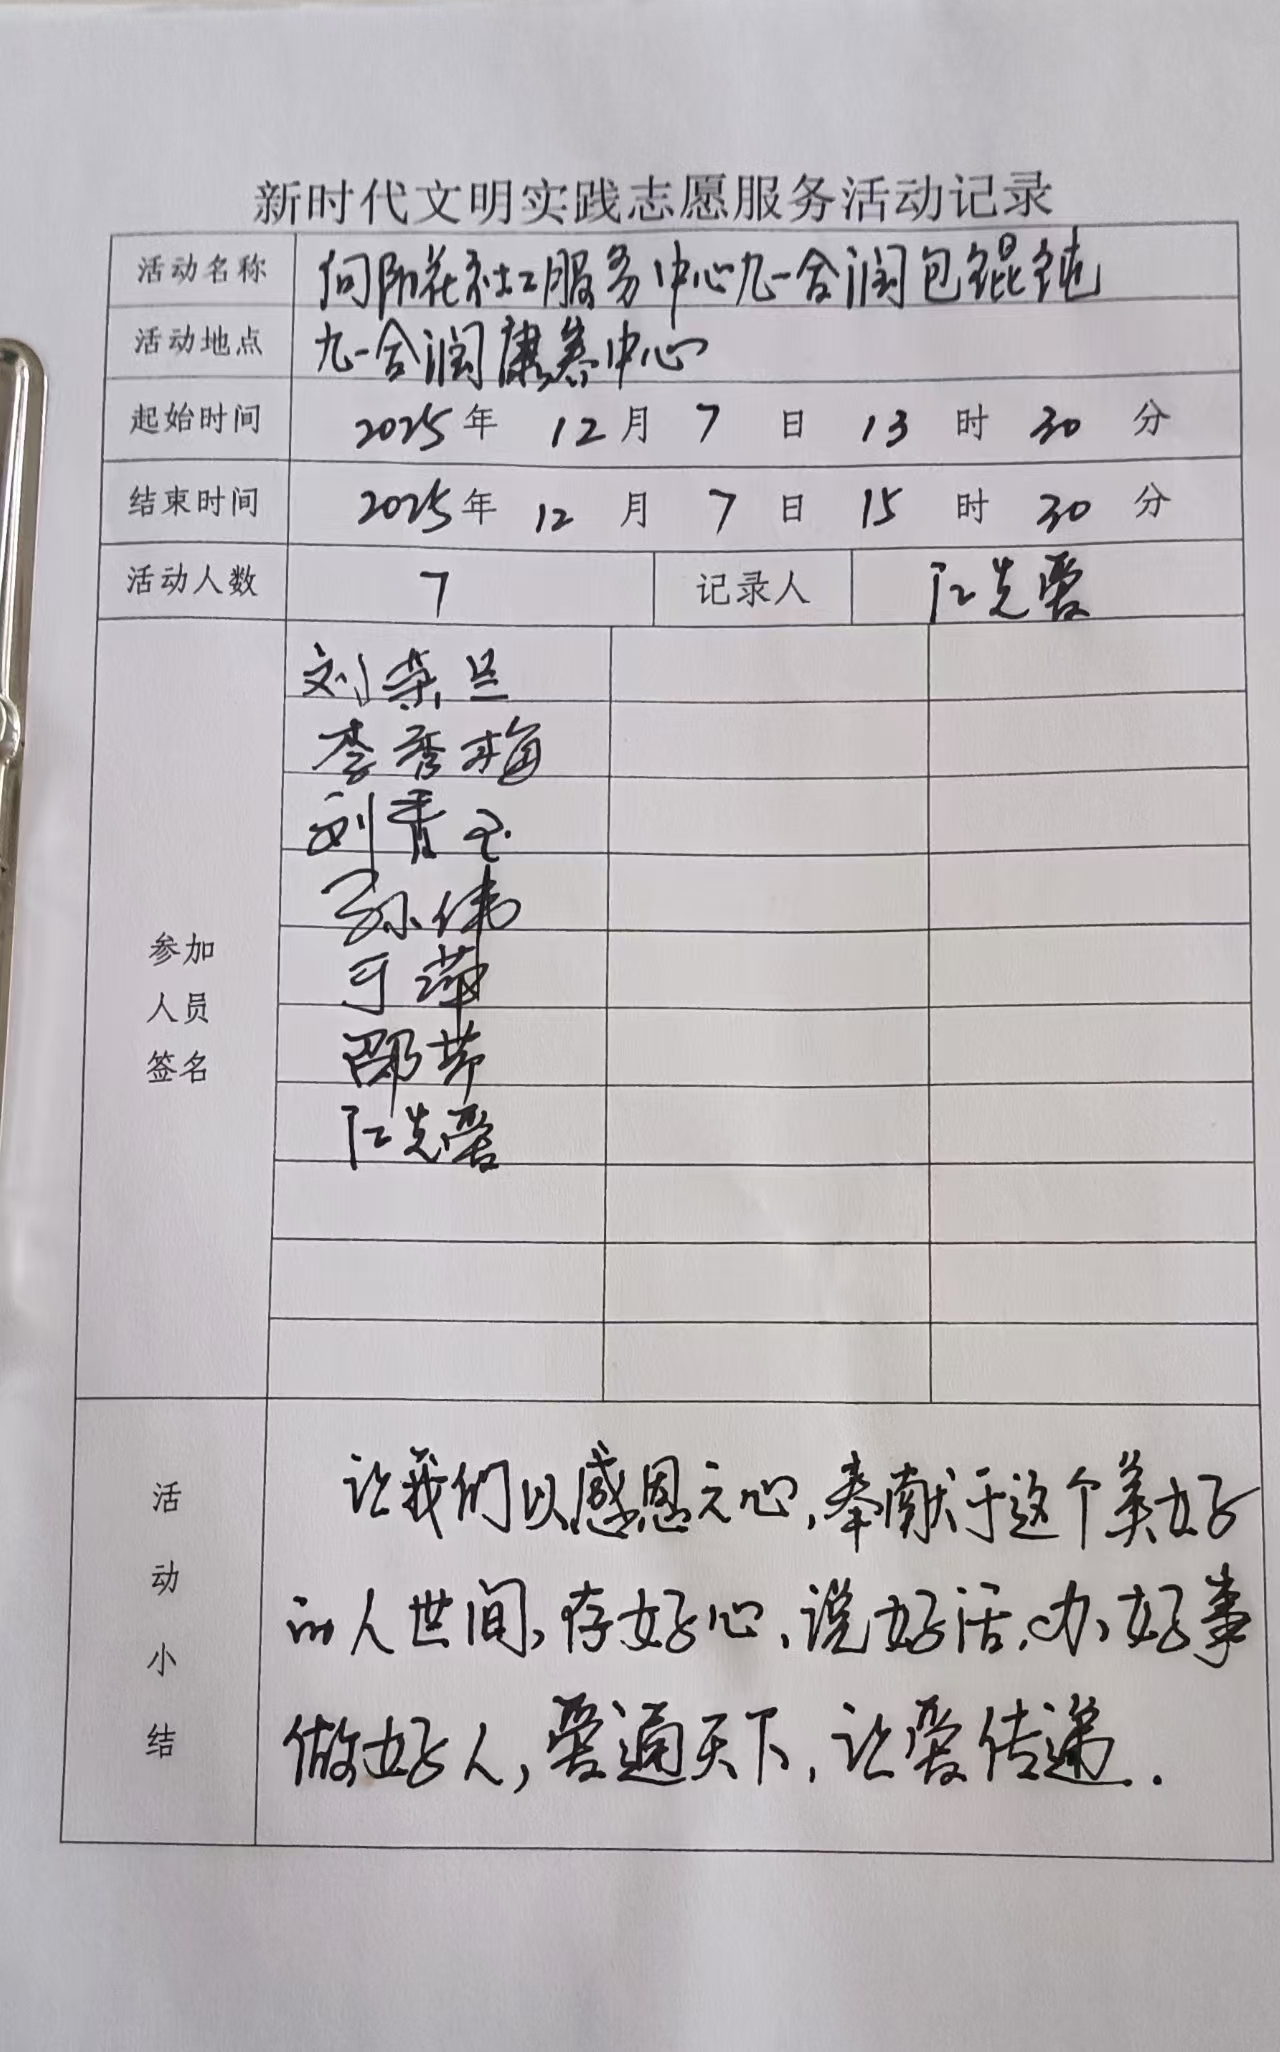 新时代文明实践志愿服务活动记录
活动名称 向阳花社工服务中心九一合润包馄饨
活动地点 九一合润康养中心
起始时间 2025年 12月 7 日 13 时 30 分
结束时间 2025年 12 月 7 日 15 时 30 分
活动人数 7 记录人 先爱
刘荣兰
李秀梅
刘青
孙伟
于萍
参加
人员
签名
邵芹
先爱
活动小结
让我们以感恩之心,奉献于这个美好
的人世间,存好心、说好话、办好事
做好人,爱通天下,让爱传递.